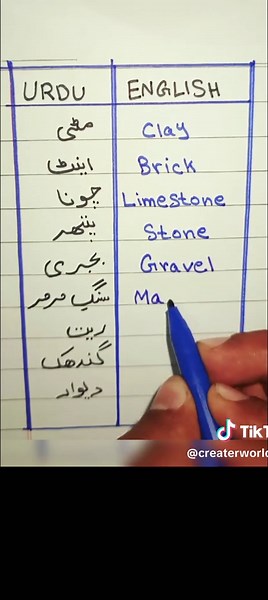 URDU ENGLISH
مٹی Clay
اینٹ Brick
چونا Limestone
پتھر Stone
بجری Gravel
سنگِ مرمر Ma
ریت
گندھک
دیوار
TikT
@createrworld